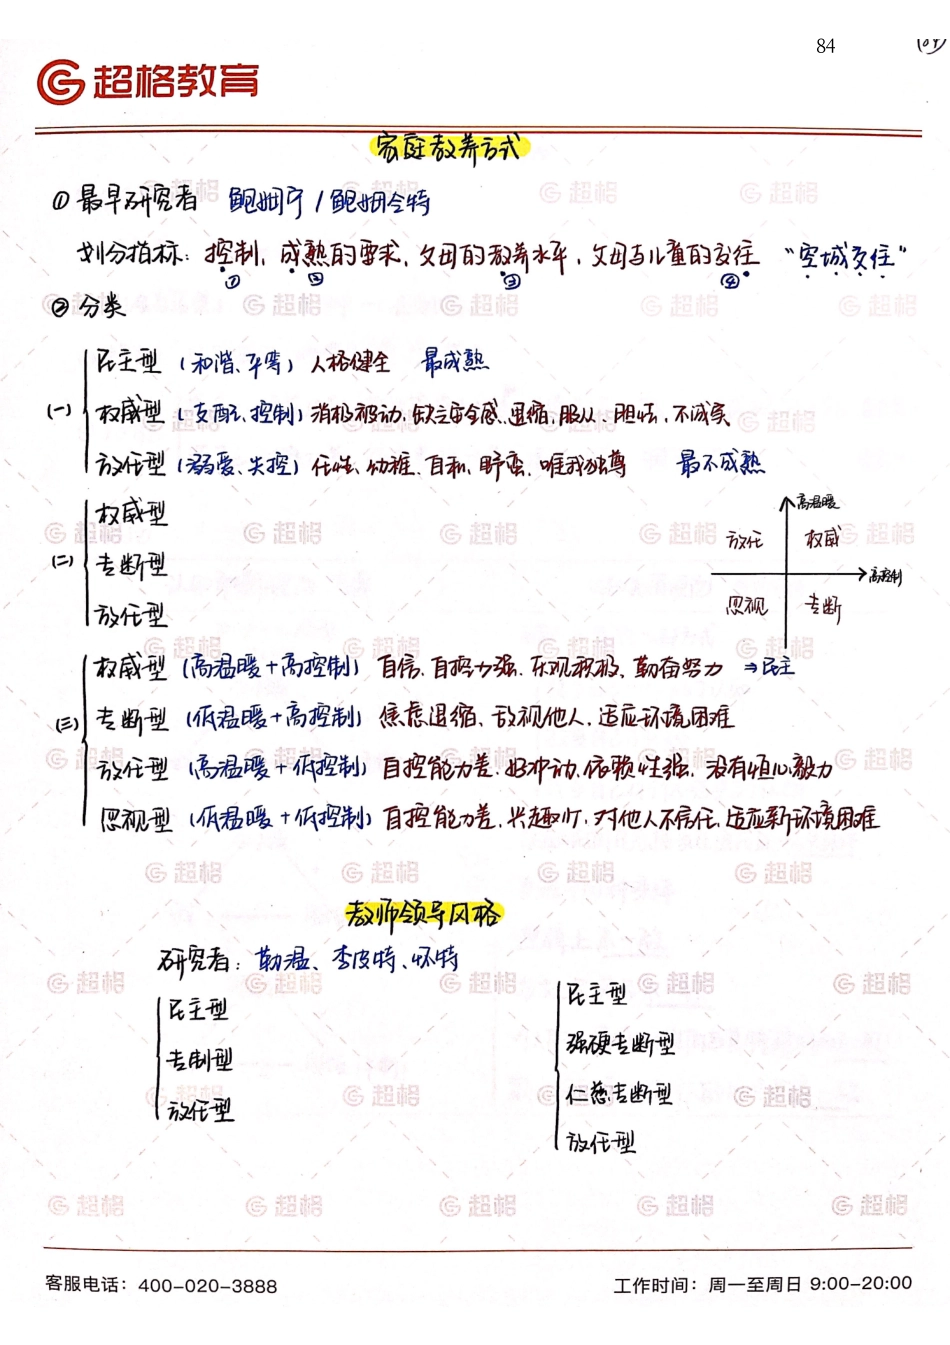 84
(84)
超格教育
家庭教养方式
① 最早研究者 鲍姆宁 / 鲍姆令特
划分指标: 控制、成熟的要求、父母的教养水平、父母与儿童的交往 “空城交往”
① ② ③ ④
② 分类
(一)
民主型 (和谐、平等) 人格健全 最成熟
权威型 (支配、控制) 消极被动、缺乏安全感、退缩、服从、胆怯、不诚实
放任型 (溺爱、失控) 任性、幼稚、自私、野蛮、唯我独尊 最不成熟
(二)
权威型
专断型
放任型
高温暖
放任 权威
高控制
忽视 专断
(三)
权威型 (高温暖+高控制) 自信、自控力强、乐观积极、勤奋努力 ⇒民主
专断型 (低温暖+高控制) 焦虑退缩、敌视他人、适应环境困难
放任型 (高温暖+低控制) 自控能力差、好冲动、依赖性强、没有恒心毅力
忽视型 (低温暖+低控制) 自控能力差、兴趣少、对他人不信任、适应新环境困难
教师领导风格
研究者: 勒温、李皮特、怀特
民主型
专制型
放任型
民主型
强硬专断型
仁慈专断型
放任型
客服电话: 400-020-3888
工作时间: 周一至周日 9:00-20:00